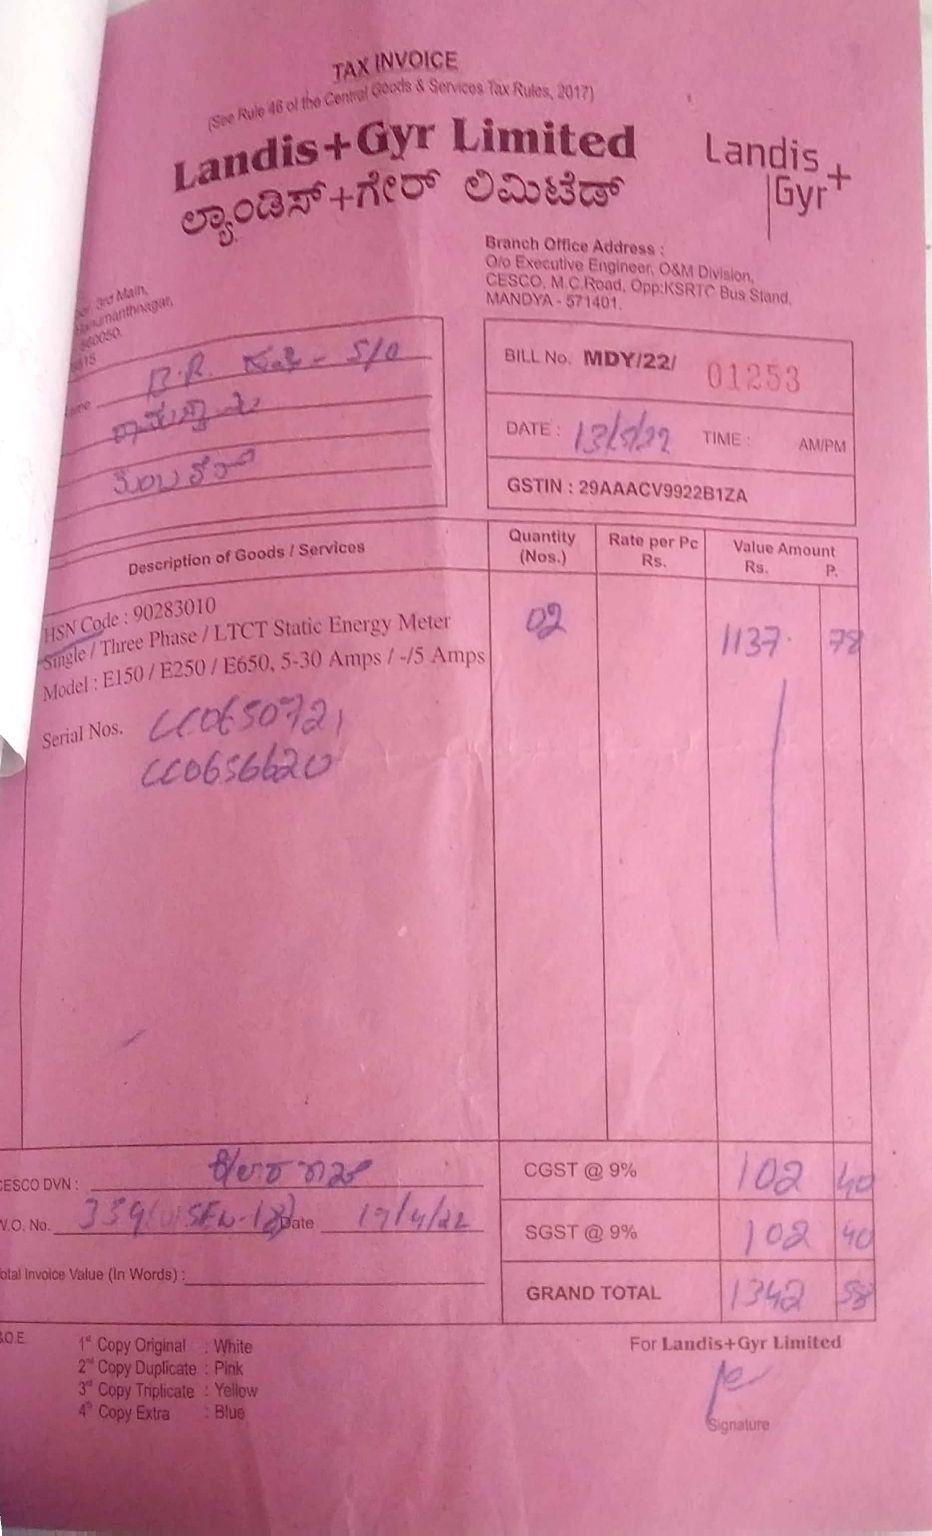 TAX INVOICE
(See Rule 46 of the Central Goods & Services Tax Rules, 2017)
Landis+Gyr Limited
ಲ್ಯಾಂಡಿಸ್+ಗೇರ್ ಲಿಮಿಟೆಡ್
Landis
Gyr+
Branch Office Address :
O/o Executive Engineer, O&M Division,
CESCO, M.C.Road, Opp:KSRTC Bus Stand,
MANDYA - 571401.
3rd Main,
560050.
R.R. - S/O
BILL No. MDY/22/ 01253
DATE : 13/5/22 TIME : AM/PM
GSTIN : 29AAACV9922B1ZA
Description of Goods / Services
Quantity
(Nos.)
Rate per Pc
Rs.
Value Amount
Rs. P.
HSN Code : 90283010
Single / Three Phase / LTCT Static Energy Meter
Model : E150 / E250 / E650, 5-30 Amps / -/5 Amps
02
1137. 78
Serial Nos. CC0650721
CC0656620
CESCO DVN :
CGST @ 9% 102 40
Date 19/4/22
SGST @ 9% 102 40
Total Invoice Value (In Words) :
GRAND TOTAL 1342 58
1st Copy Original : White
2nd Copy Duplicate : Pink
3rd Copy Triplicate : Yellow
4th Copy Extra : Blue
For Landis+Gyr Limited
Signature